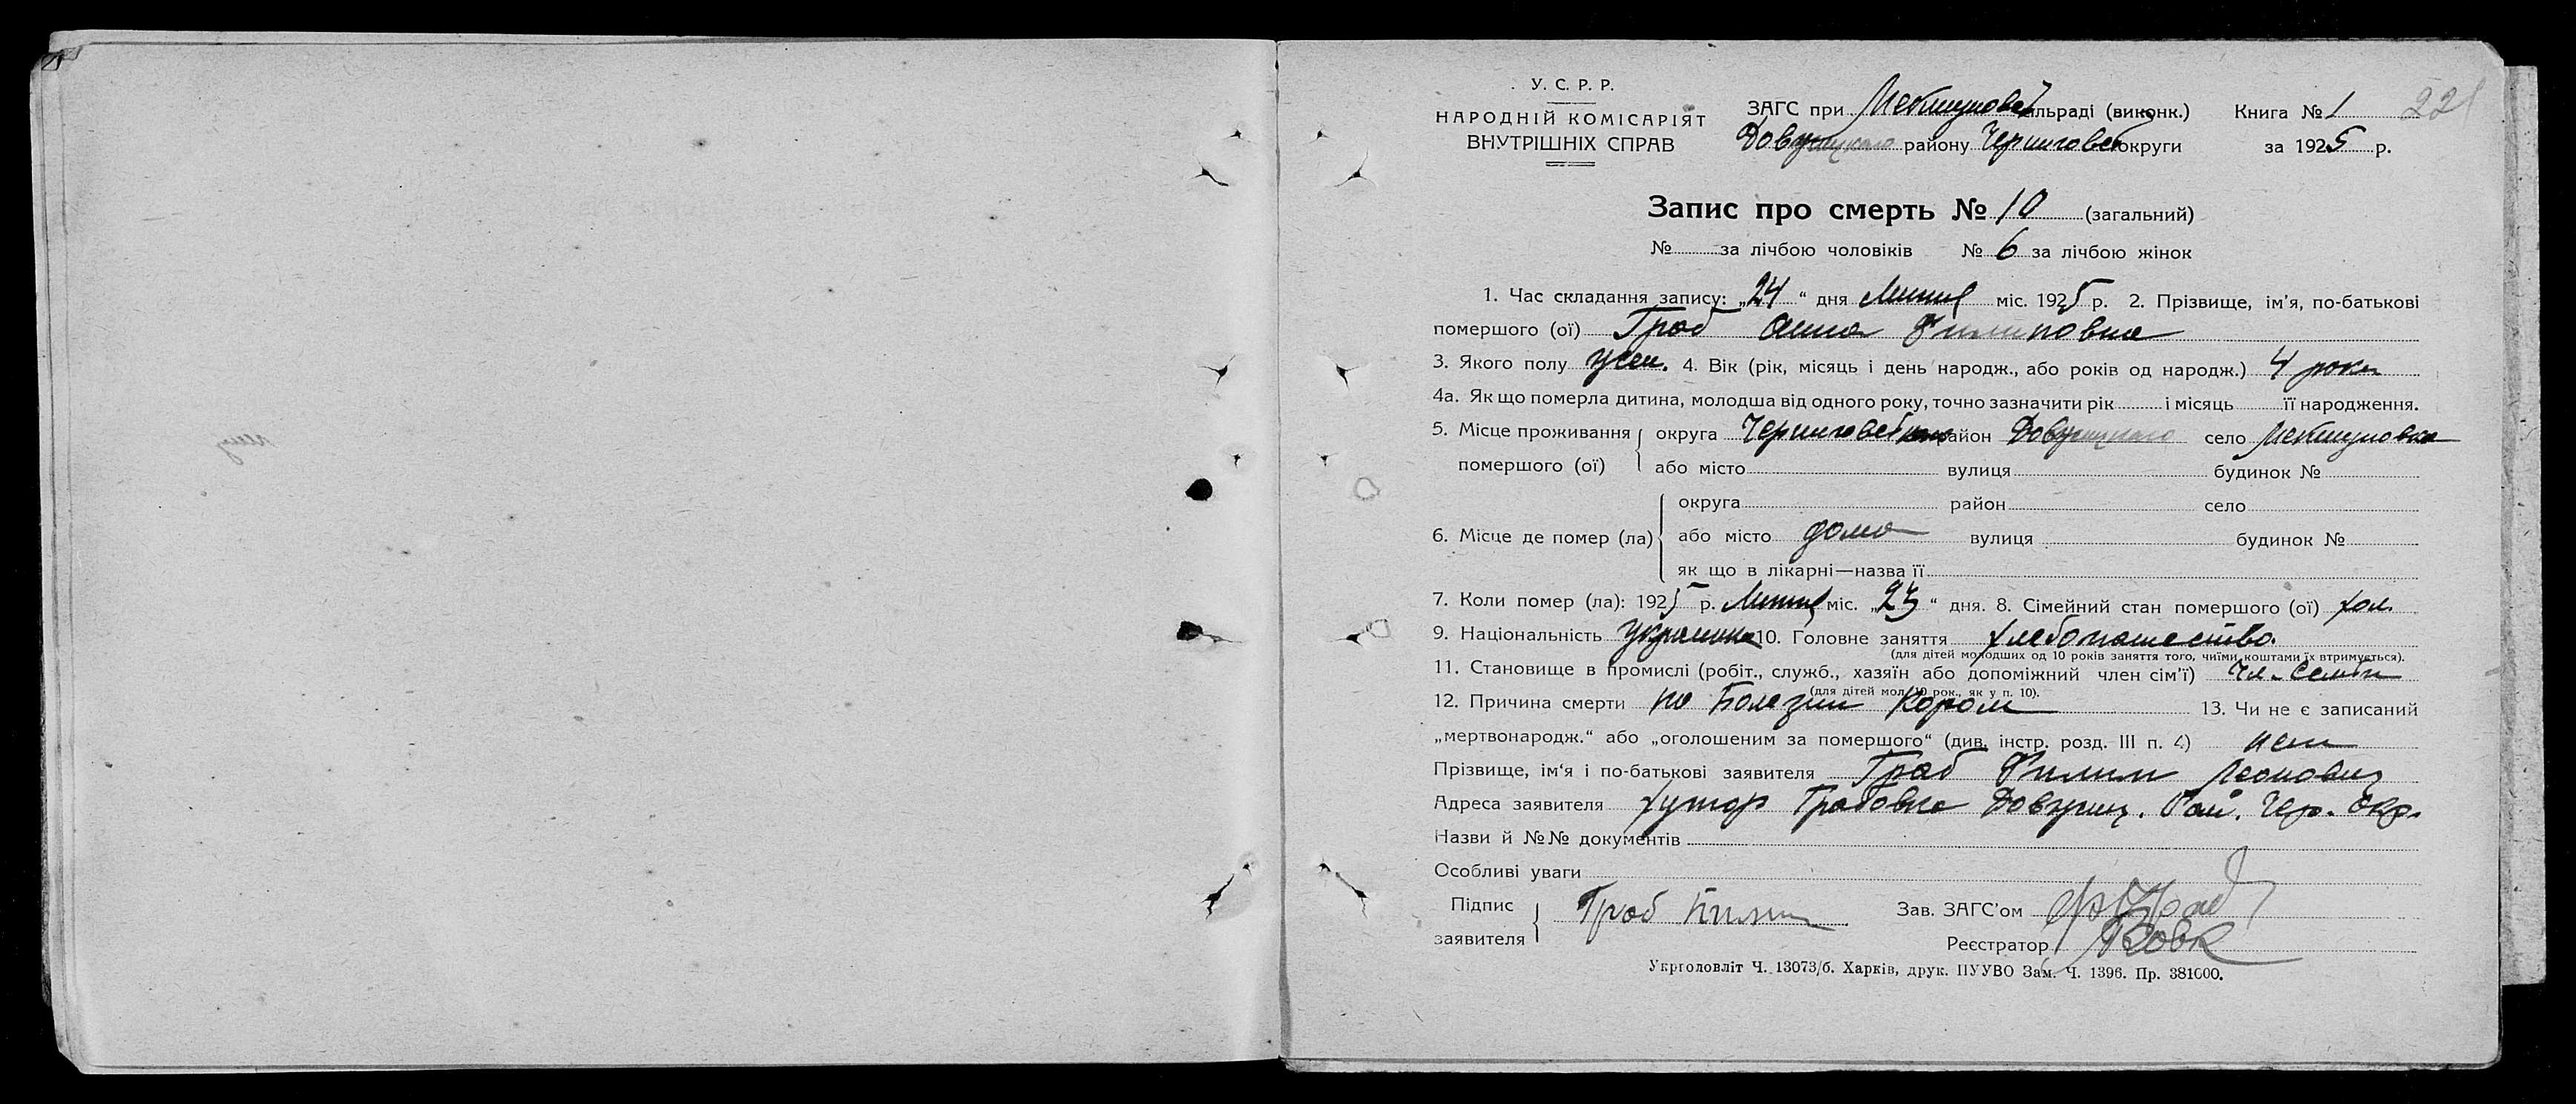 У. С. Р. Р.
НАРОДНІЙ КОМІСАРІЯТ
ВНУТРІШНІХ СПРАВ
ЗАГС при сільраді (виконк.) Книга № 1 221
району округи за 1925 р.
Запис про смерть № 10 (загальний)
№ за лічбою чоловіків № 6 за лічбою жінок
1. Час складання запису: „24“ дня міс. 1925 р. 2. Прізвище, ім'я, по-батькові
помершого (ої) Граб Анна Филиповна
3. Якого полу жен. 4. Вік (рік, місяць і день народж., або років од народж.) 4 рока
4а. Як що померла дитина, молодша від одного року, точно зазначити рік і місяць її народження.
5. Місце проживання округа район село
помершого (ої) або місто вулиця будинок №
округа район село
6. Місце де помер (ла) або місто дома вулиця будинок №
як що в лікарні—назва її
7. Коли помер (ла): 1925 р. міс. „23“ дня. 8. Сімейний стан помершого (ої) хол.
9. Національність украинка 10. Головне заняття хлебопашество.
(для дітей молодших од 10 років заняття того, чиїми коштами їх втримується).
11. Становище в промислі (робіт., служб., хазяїн або допоміжний член сім'ї) Чл. семьи
(для дітей мол. 10 рок., як у п. 10).
12. Причина смерти по Болезни Короли 13. Чи не є записаний
„мертвонародж.“ або „оголошеним за помершого“ (див. інстр. розд. III п. 4) нет
Прізвище, ім'я і по-батькові заявителя Граб Филип
Адреса заявителя хутор Грабовка Рай. Чер. Окр.
Назви й №№ документів
Особливі уваги
Підпис
заявителя Граб Зав. ЗАГС'ом
Реєстратор Вовк
Укрголовліт Ч. 13073/б. Харків, друк. ПУУВО Зам. Ч. 1396. Пр. 381000.